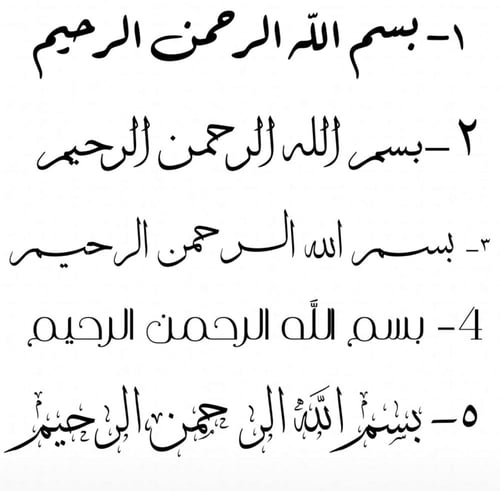 ١- بسم اللّه الرحمن الرحيم
٢- بسم الله الرحمن الرحيم
٣- بسم الله الرحمن الرحيم
4- بسم اللَّه الرحمن الرحيم
٥- بِسْمِ اللَّهِ الرحمن الرحيم